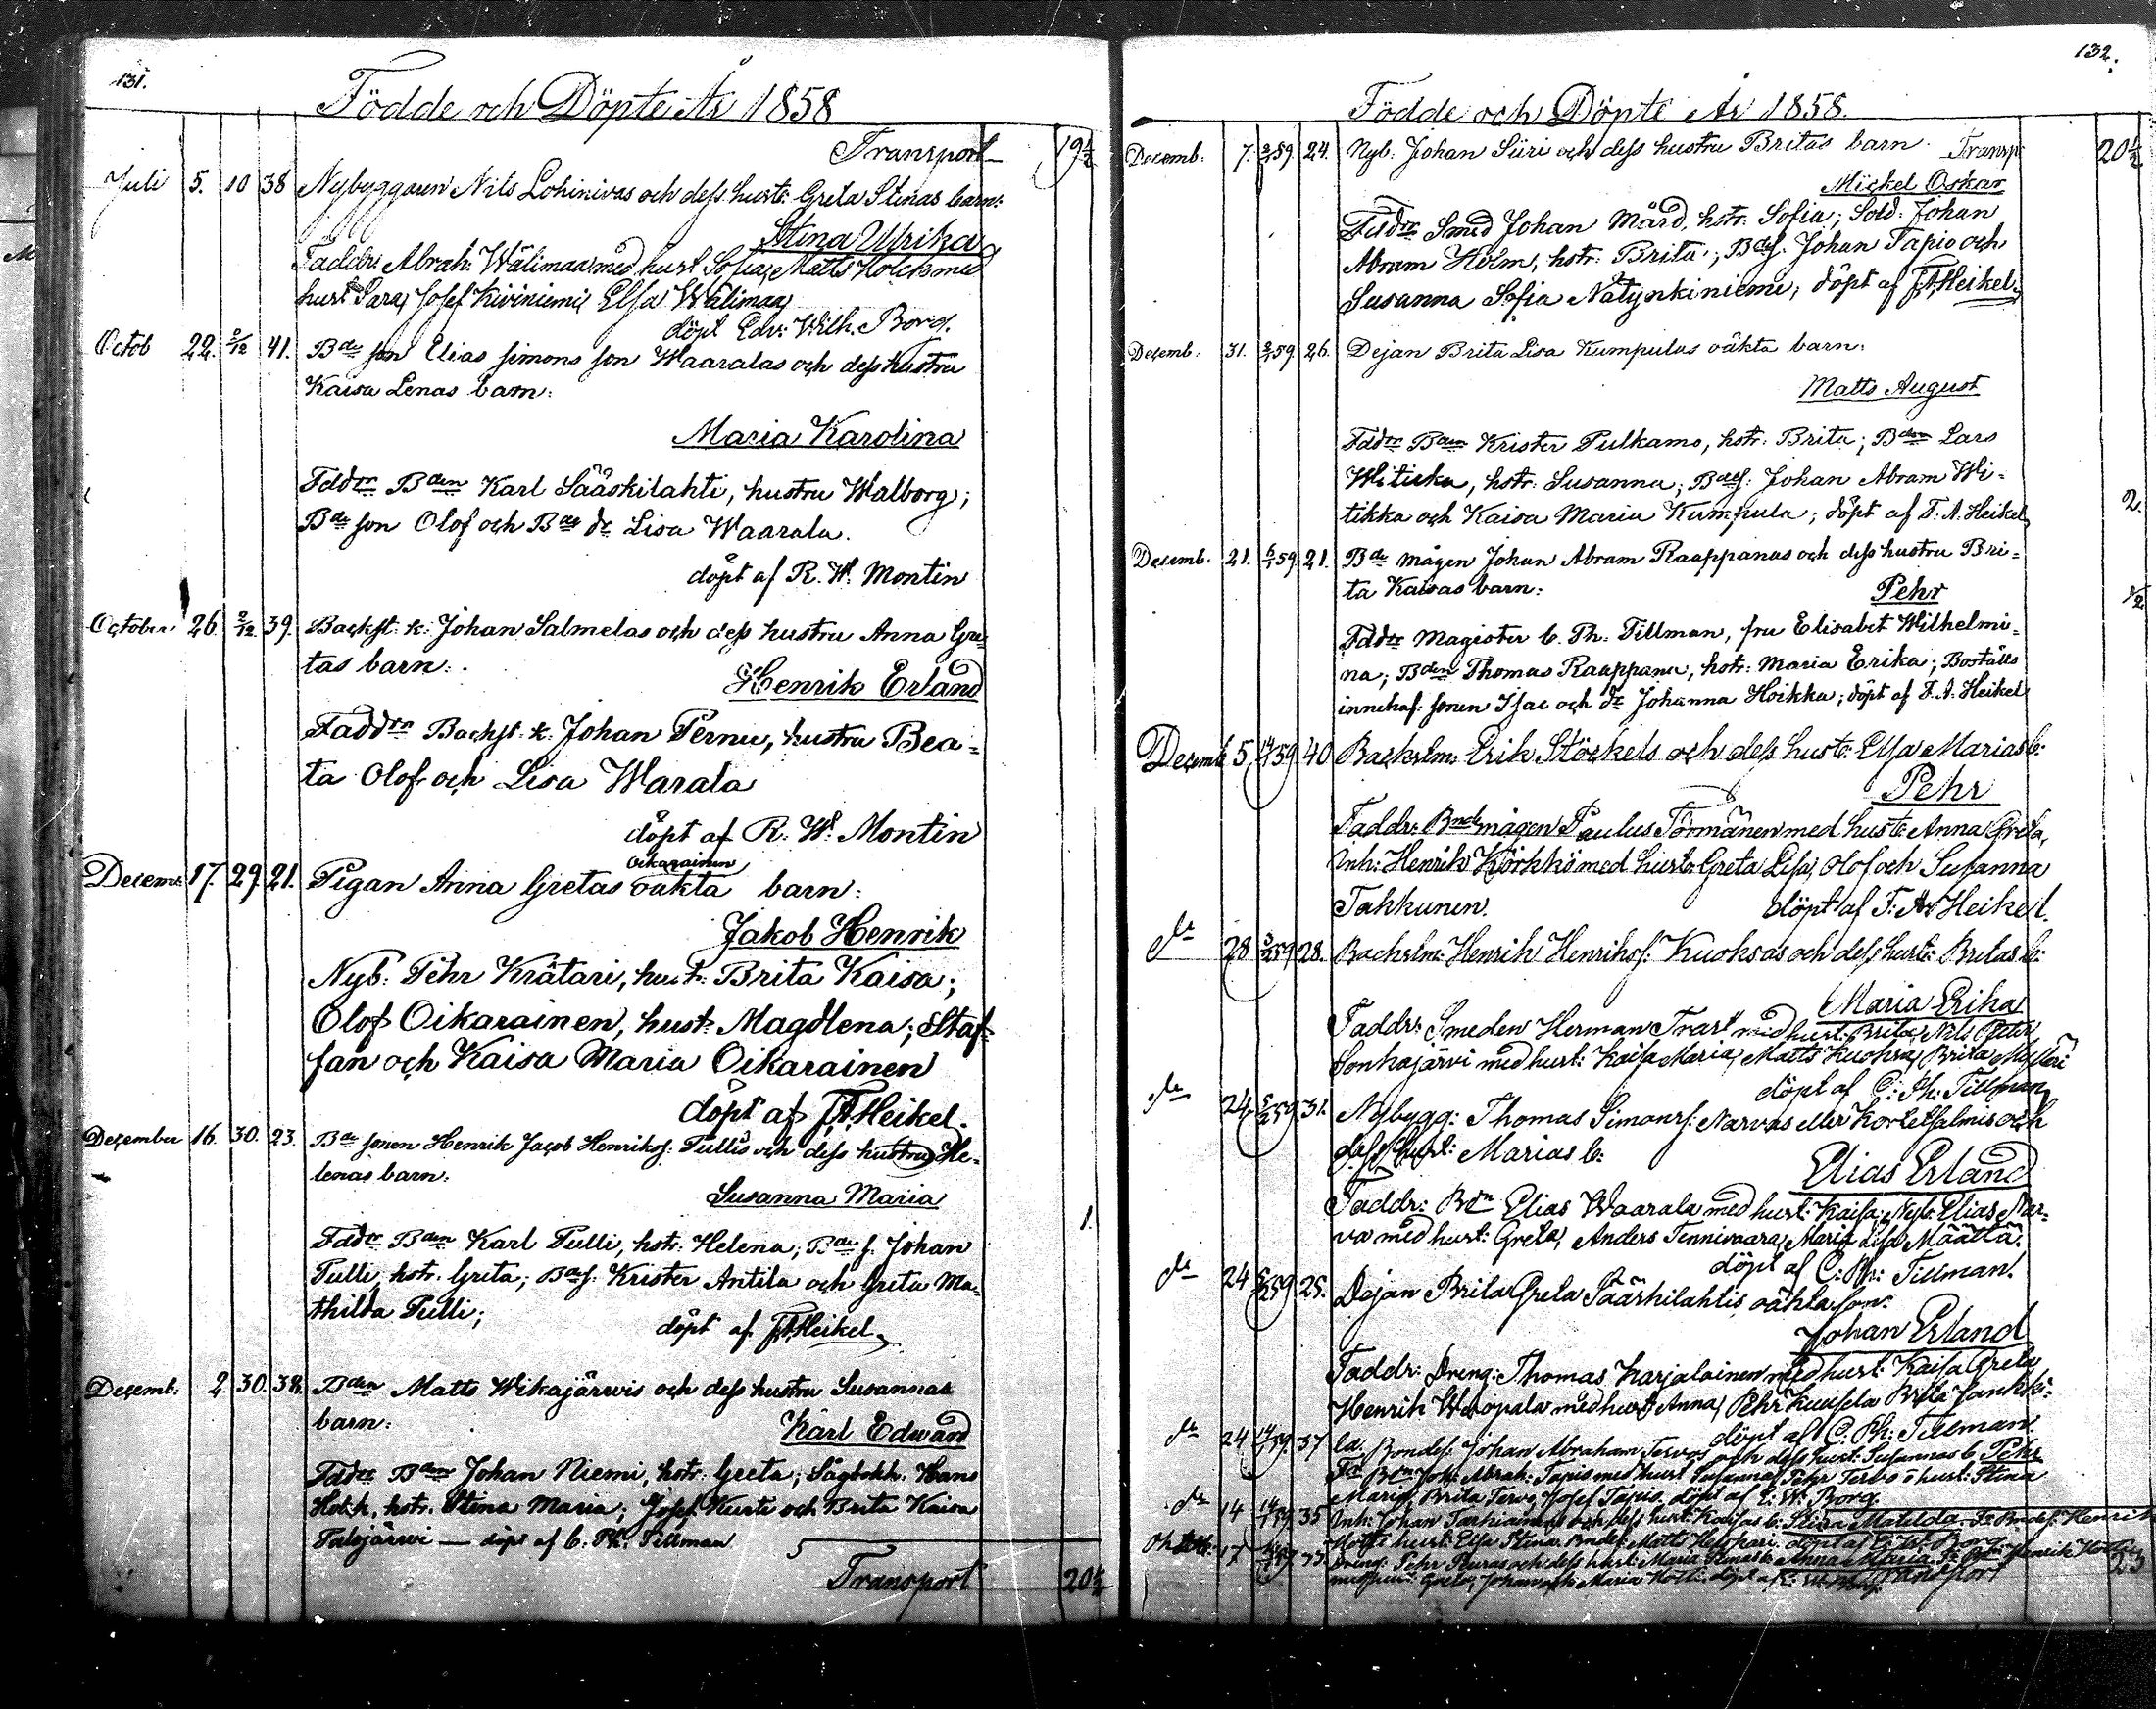 131.
Födde och Döpte År 1858
Transport 19½
Juli 5. 10 38 Nybyggaren Nils Lohinivas och dess hustr: Greta Stinas barn:
Stina Ulrika
Faddr: Abrah: Wälimaa med hust Sofia, Matts Holck med
hust Sara, Josef Kiviniemi, Elsa Wälimaa
döpt Edv: Wilh. Borg.
Octob 22. 2/12 41. Bde son Elias Simons son Waaralas och dess hustru
Kaisa Lenas barn:
Maria Karolina
Faddrr Bden Karl Sääskilahti, hustru Walborg;
Bde son Olof och Bde dr Lisa Waarala.
döpt af R. W. Montin
October 26. 2/12 39. Backst. k: Johan Salmelas och dess hustru Anna Gre=
tas barn:
Henrik Erland
Faddrr Backst. k: Johan Pernu, hustru Bea=
ta Olof och Lisa Warala
döpt af R. W. Montin
Oikarainen
Decemb 17. 29. 21. Pigan Anna Gretas oäkta barn:
Jakob Henrik
Nyb: Pehr Krätari, hustr: Brita Kaisa;
Olof Oikarainen, hust: Magdlena; Staf=
fan och Kaisa Maria Oikarainen
döpt af F.A. Heikel.
December 16. 30. 23. Bde sonen Henrik Jacob Henriks s: Tullis och dess hustru He=
lenas barn:
Susanna Maria
1.
Faddr Bden Karl Tulli, hstr: Helena; Bde s. Johan
Tulli, hstr. Greta; Bde s. Krister Antila och Greta Ma=
thilda Tulli;
döpt af F.A. Heikel
Decemb: 2. 30. 38. Bden Matts Wikajärwis och dess hustru Susannas
barn:
Karl Edward
Faddr Bden Johan Niemi, hstr: Greta; Sågbokh. Hans
hstr. Stina Maria; Josef Kurti och Brita Kaisa
döpt af C. Ph. Tillman
Transport 20½
132.
Födde och Döpte År 1858.
Decemb: 7. 2/1 59. 24. Nyb: Johan Siiri och dess hustru Britas barn. Transp: 20½
Mickel Oskar
Faddr Smed Johan Mård, hstr: Sofia; Sold: Johan
Abram Holm, hstr: Brita; Bde s: Johan Tapio och
Susanna Sofia Nätynkiniemi; döpt af F.A. Heikel.
Decemb: 31. 2/1 59. 26. Dejan Brita Lisa Kumpulas oäkta barn:
Matts August
Faddr Bden Krister Pulkamo, hstr: Brita; Bden Lars
Witicka, hstr: Susanna; Bde s: Johan Abram Wi=
tikka och Kaisa Maria Kumpula; döpt af F. A. Heikel
2.
Decemb. 21. 6/1 59. 21. Bde mågen Johan Abram Raappanas och dess hustru Bri=
ta Kaisas barn:
Pehr
½
Faddr Magister C. Ph. Tillman, fru Elisabet Wilhelmi=
na; Bden Thomas Raappana, hstr: Maria Erika; Boställs
innehaf: sonen Isac och dr Johanna Hoikka; döpt af F. A. Heikel
Decemb 5. 14/1 59 40 Backslm: Erik Stöckels och dess hustr: Elsa Marias b:
Pehr
Faddr: Bnde mågen Paulus Törmänen med hustr: Anna Greta,
Inh: Henrik Körkkö med hustr: Greta Lisa, Olof och Susanna
Takkunen. döpt af F: A: Heikel.
dr 28 28. Backslm: Henrik Henriks s: Kuoksas och dess hustr: Britas b:
Maria Erika
Faddr: Smeden Herman Trast med hust: Brita, Nils Petter
Sonkajärvi med hust: Kaisa Maria, Matts Kuoksa, Brita
döpt af C: Ph: Tillman
dr 24 31. Nybygg: Thomas Simons s: Narvas eller Kortetsalmis och
dess hust: Marias b:
Elias Erland
Faddr: Bdn Elias Waarala med hust: Kaisa, Nyb: Elias Nar=
va med hust: Greta, Anders Tennivaara, Maria Lisa Määttä.
döpt af C: Ph: Tillman.
dr 24 25. Dejan Brita Greta Sääskilahtis oäkta son:
Johan Erland
Faddr: Dreng: Thomas Karjalainen med hust: Kaisa Greta
Henrik Waopala med hust Anna, Pehr Kuusela Brita
döpt af C. Ph: Tillman
dr 24 37 Bondes: Johan Abraham Tervos och dess hust: Susannas b. Pehr
Fr Bdn Joh: Abrah: Tapio med hust Susanna, Pehr Tervo o hust: Stina
Maria, Brita Tervo, Josef Tapio, döpt af E. W. Borg
dr 14 35 Inh: Johan och dess hust: Kaisas b: Matilda Henrik
hust: Elsa Stina döpt af Borg
17 Dreng: Pehr och dess hust: Maria Anna Maria Henrik
Greta, Johan och Maria döpt af
Transport 23